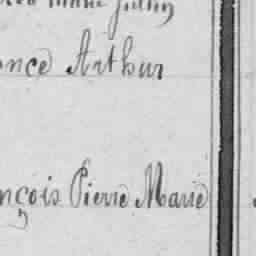 Marie Julien
ence Arthur
nçois Pierre Marie